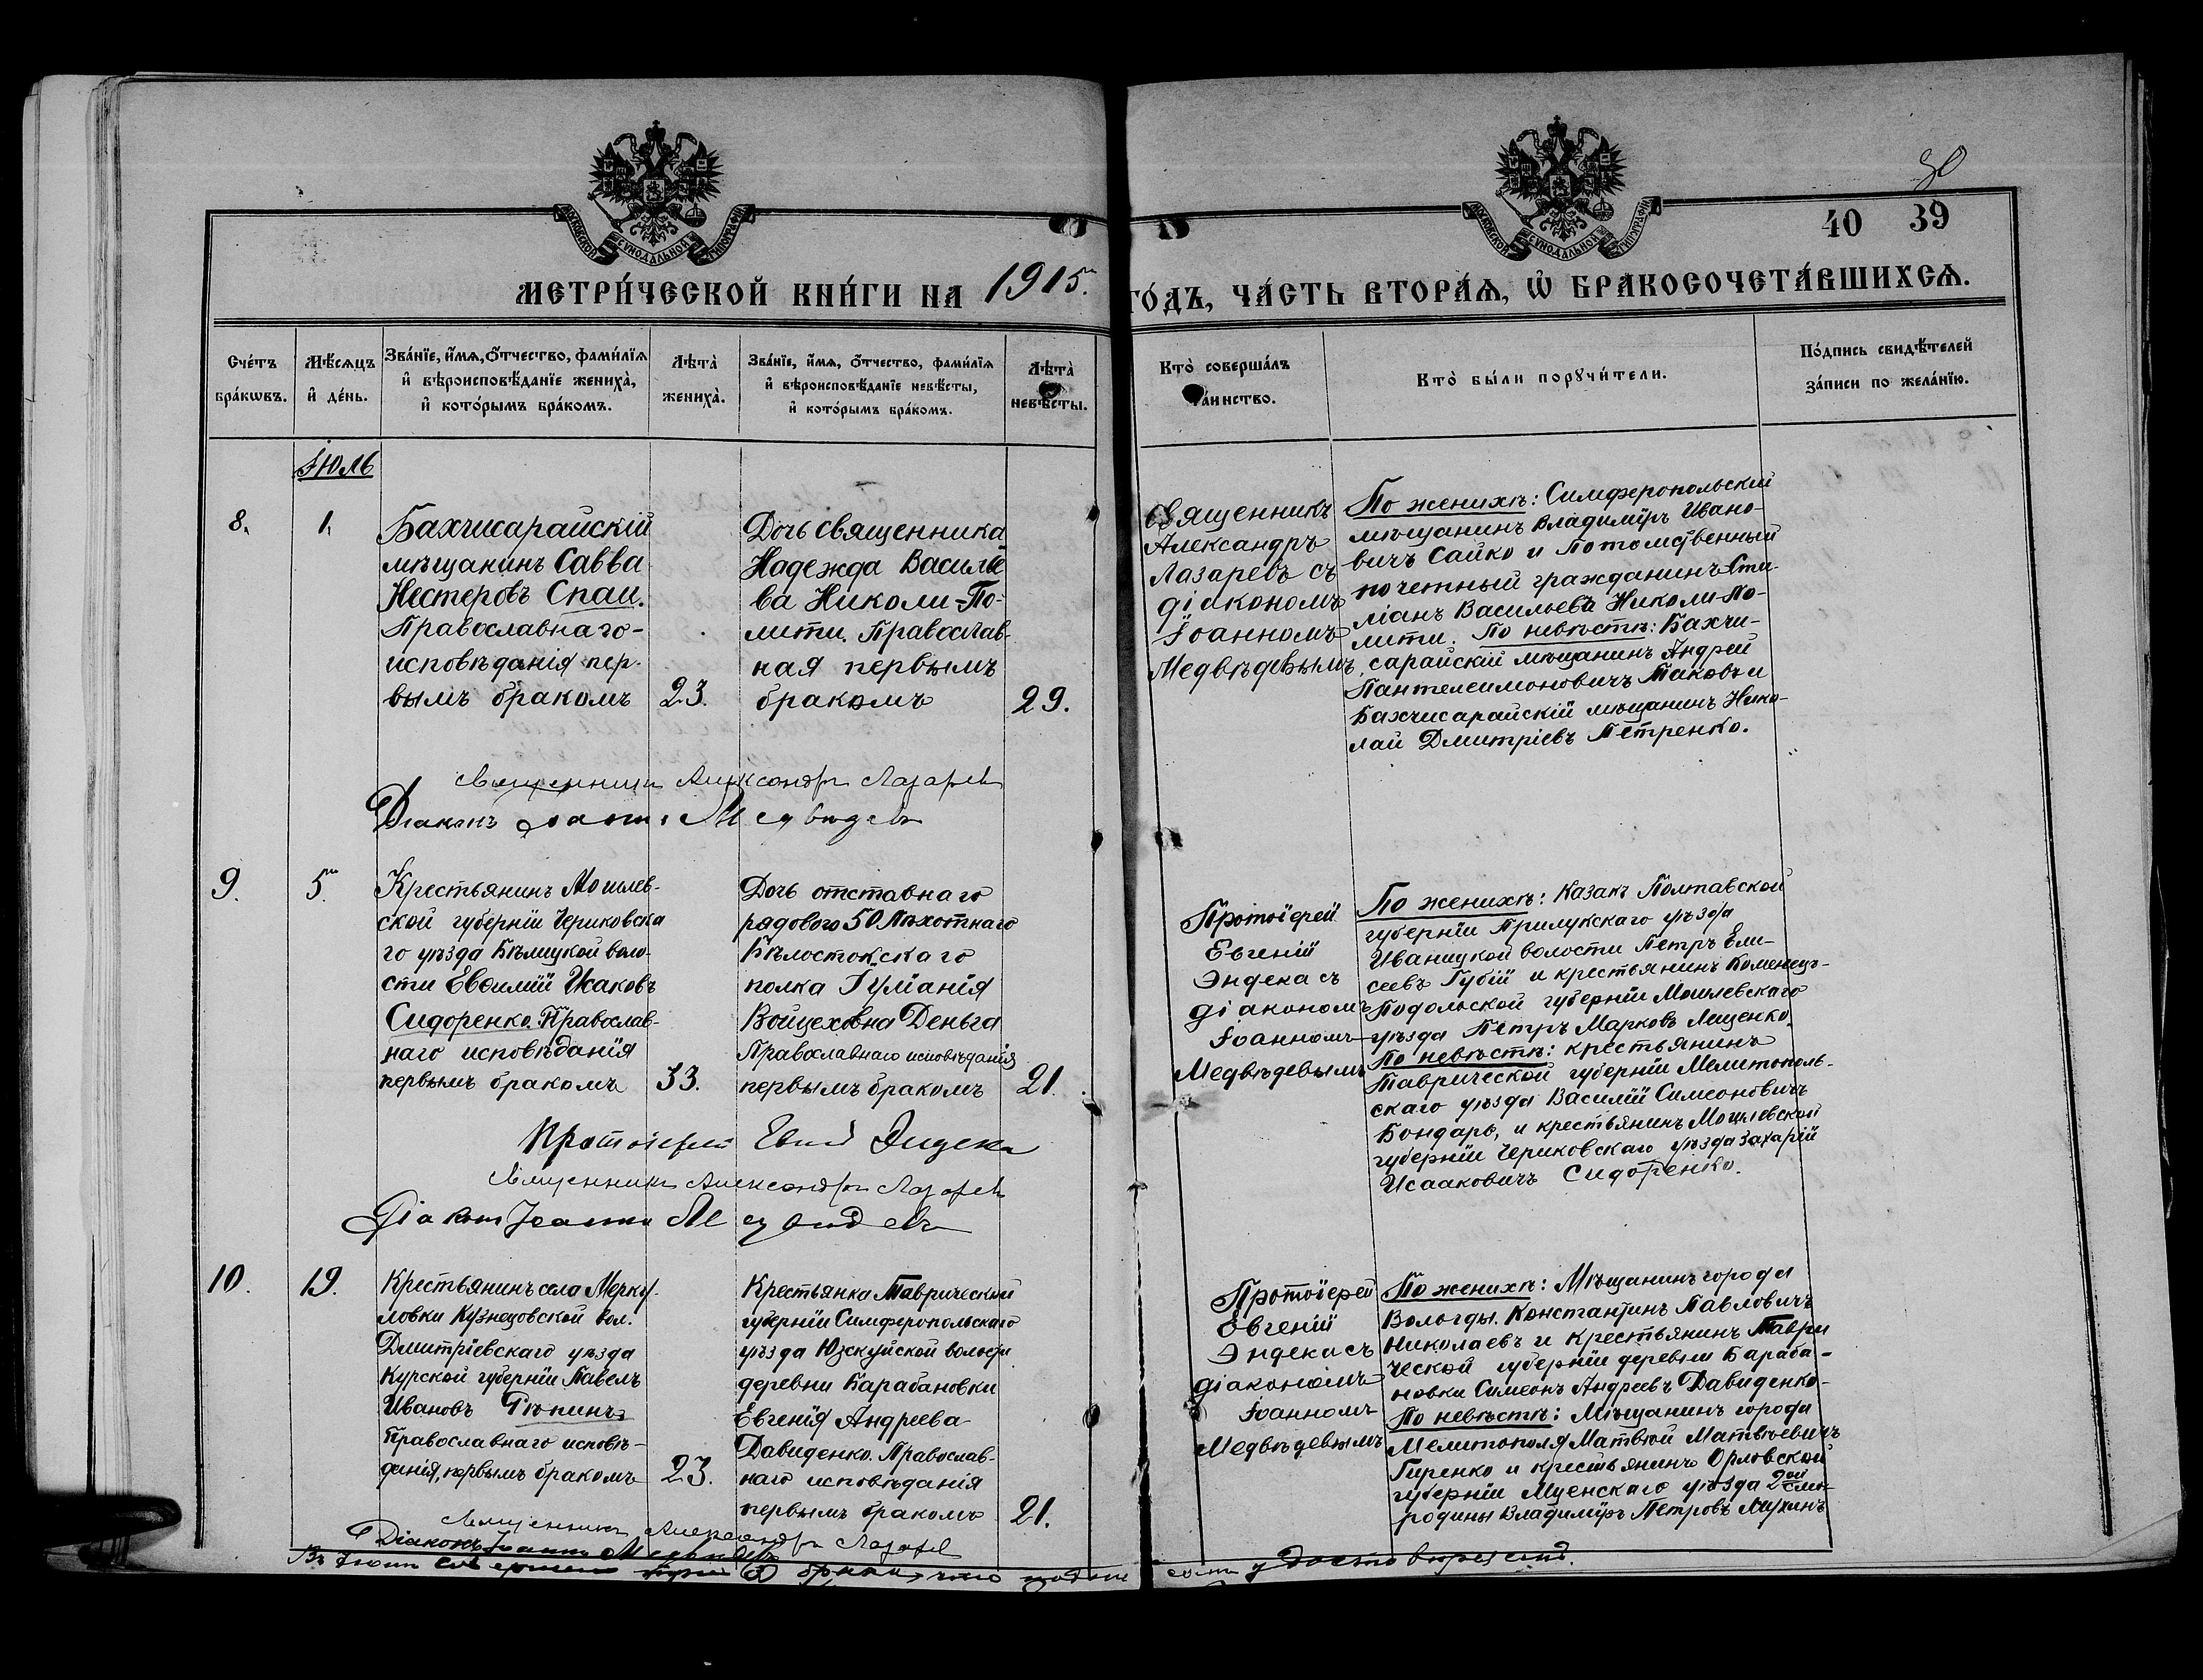 30
40 39
МОСКОВСКОЙ СѴНОДАЛЬНОЙ ТИПОГРАФІИ
МОСКОВСКОЙ СѴНОДАЛЬНОЙ ТИПОГРАФІИ
МЕТРИ́ЧЕСКОЙ КНИ́ГИ НА 1915. ГО́ДЪ, ЧА́СТЬ ВТОРА́Ѧ, Ѡ҆ БРАКОСОЧЕТА́ВШИХСѦ.
Сче́тъ
бра́кѡвъ.
Мѣ́сѧцъ
и҆ де́нь.
Зва́нїе, и҆́мѧ, ѻ҆́тчество, фами́лїѧ
и҆ вѣроисповѣ́данїе жениха̀,
и҆ кото́рымъ бра́комъ.
Лѣта̀
жениха̀.
Зва́нїе, и҆́мѧ, ѻ҆́тчество, фами́лїѧ
и҆ вѣроисповѣ́данїе невѣ́сты,
и҆ кото́рымъ бра́комъ.
Лѣта̀
невѣ́сты.
Кто̀ соверша́лъ
та́инство.
Кто̀ бы́ли порꙋчи́тели.
По́дпись свидѣ́телей
за́писи по жела́нїю.
Іюль
8.
1.
Бахчисарайскій
мѣщанинъ Савва
Нестеровъ Спаи.
Православнаго-
исповѣданія пер-
вымъ бракомъ
23.
Дочь священника
Надежда Василье
ва Николи-По-
лити. Православ-
ная первымъ
бракомъ
29.
Священникъ
Александръ
Лазаревъ съ
діакономъ
Іоанномъ
Медвѣдевымъ
По женихѣ: Симферопольскій
мѣщанинъ Владиміръ Ивано-
вичъ Сайко и Потомственный
почетный гражданинъ Сти-
ліанъ Васильевъ Николи-По-
лити. По невѣстѣ: Бахчи-
сарайскій мѣщанинъ Андрей
Пантелеимоновичъ Таковъ и
Бахчисарайскій мѣщанинъ Нико-
лай Дмитріевъ Петренко.
Священникъ Александръ Лазаревъ
Діаконъ Іоаннъ Медвѣдевъ
9.
5.
Крестьянинъ Могилев-
ской губерніи Чериковска
го уѣзда Бѣлицкой воло-
сти Евѳимій Исаковъ
Сидоренко. Православ-
наго исповѣданія
первымъ бракомъ
33.
Дочь отставнаго
рядового 50 Пѣхотнаго
Бѣлостокскаго
полка Іуліанія
Войцеховна Деньга
Православнаго исповѣданія
первымъ бракомъ
21.
Протоіерей
Евгеній
Эндека съ
діакономъ
Іоанномъ
Медвѣдевымъ
По женихѣ: Казакъ Полтавской
губерніи Прилукскаго уѣзда
Иваницкой волости Петръ Ели-
сеевъ Губій и крестьянинъ Каменецъ-
Подольской губерніи Могилевскаго
уѣзда Петръ Марковъ Лященко.
По невѣстѣ: крестьянинъ
Таврической губерніи Мелитополь-
скаго уѣзда Василій Симеоновичъ
Бондарь, и крестьянинъ Могилевской
губерніи Чериковскаго уѣзда Захарій
Исааковичъ Сидоренко.
Протоіерей Евгеній Эндека
Священникъ Александръ Лазаревъ
Діаконъ Іоаннъ Медвѣдевъ
10.
19.
Крестьянинъ села Меркул-
ловки Кузнецовской вол.
Дмитріевскаго уѣзда
Курской губерніи Павелъ
Ивановъ Рѣпинъ
Православнаго исповѣ-
данія, первымъ бракомъ
23.
Крестьянка Таврической
губерніи Симферопольскаго
уѣзда Юзскуйской волости
деревни Барабановки
Евгенія Андреева
Давиденко. Православ-
наго исповѣданія
первымъ бракомъ
21.
Протоіерей
Евгеній
Эндека съ
діакономъ
Іоанномъ
Медвѣдевымъ
По женихѣ: Мѣщанинъ города
Вологды, Константинъ Павловичъ
Николаевъ и крестьянинъ Таври
ческой губерніи деревни Бараба-
новки Симеонъ Андреевъ Давиденко-
По невѣстѣ: Мѣщанинъ города
Мелитополя Матвѣй Матвѣевичъ
Гиренко и крестьянинъ Орловской
губерніи Мценскаго уѣзда 2ой Смо-
родины Владиміръ Петровъ Мухинъ
Священникъ Александръ Лазаревъ
Діаконъ Іоаннъ Медвѣдевъ
Въ совершено три (3) брака, что удостовѣряемъ.